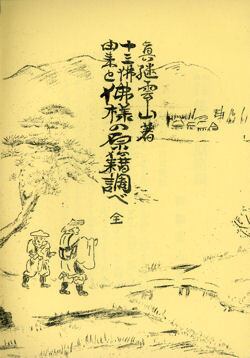 眞継雲山著
十三佛
由来と佛様の原籍調べ 全